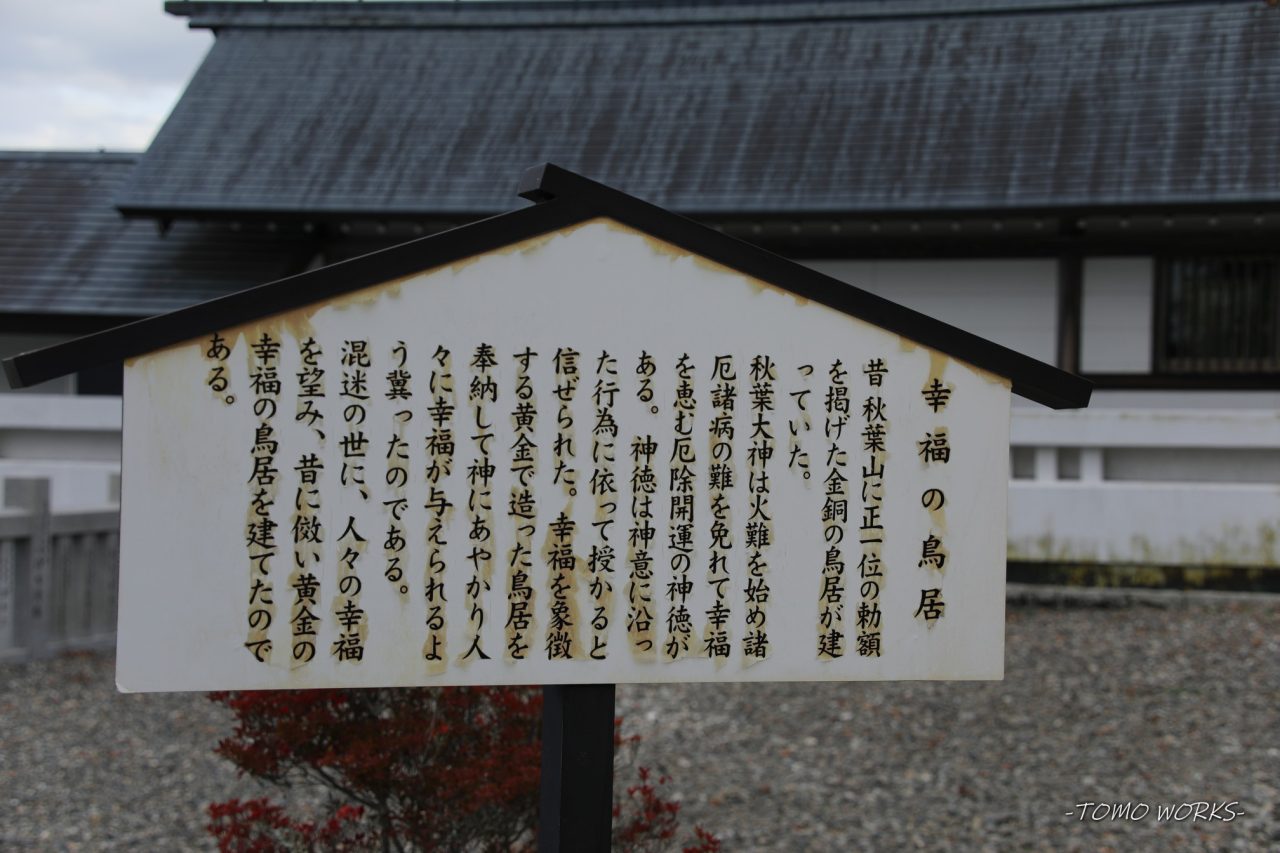 幸福の鳥居
昔 秋葉山に正一位の勅額
を掲げた金銅の鳥居が建
っていた。
秋葉大神は火難を始め諸
厄諸病の難を免れて幸福
を恵む厄除開運の神徳が
ある。神徳は神意に沿っ
た行為に依って授かると
信ぜられた。幸福を象徴
する黄金で造った鳥居を
奉納して神にあやかり人
々に幸福が与えられるよ
う冀ったのである。
混迷の世に、人々の幸福
を望み、昔に倣い黄金の
幸福の鳥居を建てたので
ある。
-TOMO WORKS-